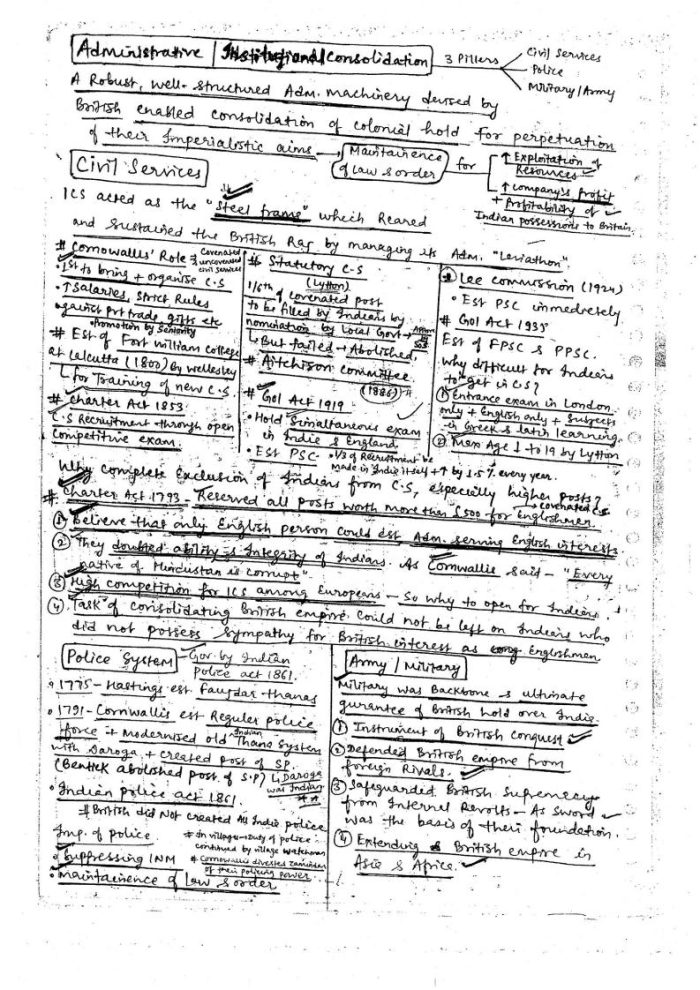 Administrative / Institutional Consolidation
3 Pillers
Civil Services
Police
Military/Army
A Robust, well-structured Adm. machinery devised by
British enabled consolidation of colonial hold for perpetuation
of their Imperialistic aims
Maintainence of law & order
for
↑ Exploitation of Resources
↑ company's profit
+ Profitability of
Indian possessions to Britain.
Civil Services
ICS acted as the "Steel frame" which Reared
and sustained the British Raj by managing its Adm. "Leviathon"
# Cornowallis' Role
Covenated
uncovenated
civil services
• 1st to bring + organise C.S
• ↑ Salaries, Strict Rules
• against pvt trade, gifts etc
• Promotion by Seniority
# Est of Fort william college
at Calcutta (1800) by wellesley
for Training of new C.S.
# Charter Act 1853
C.S Recruitment through open
competitive exam.
# Statutory C-S
(Lytton)
1/6th of covenated post
to be filled by Indians by
nomination by Local Govt
But failed → Abolished.
# Aitchison committee
(1886)
# GoI Act 1919
• Hold Simultaneous exam
in India & England
• Est PSC
• 1/3 of Recruitment be
made in India itself + ↑ by 1.5% every year.
Lee commission (1924)
• Est PSC immedietely
# GoI Act 1935
Est of FPSC & PPSC.
why difficult for Indians
to get in C.S?
① Entrance exam in London
only + English only + Subjects
in Greek & latin learning.
② Max Age ↓ to 19 by Lytton
Why complete Exclusion of Indians from C.S, especially higher posts?
covenated C.S
# Charter Act 1793 - Reserved all posts worth more than £500 for Englishmen.
① Believe that only English person could est Adm. serving English interests
② They doubted ability & Integrity of Indians. As Cornwallis said - "Every
native of Hindustan is corrupt"
③ High competition for ICS among Europeans - So why to open for Indians.
④ Task of consolidating British empire could not be left on Indians who
did not possess sympathy for British interest as Englishmen
Police System
Gov. by Indian
Police act 1861.
• 1775 - Hastings est Faujdar thanas
• 1791 - Cornwallis est Regular police
force + Modernised old Indian Thana System
with Daroga, + created post of SP.
(Bentick abolished post of S.P)
Daroga
was Indian
• Indian police act 1861.
# British did Not created All India police
Imp. of police.
# In village - duty of police
continued by village watchman
• Suppressing INM
# Cornowallis divested zamindar
of their policing power.
• maintainence of law & order
Army / Military
Military was Backbone & ultimate
gurantee of British hold over India.
① Instrument of British conquest
② Defended British empire from
foreign Rivals.
③ Safeguarded British Supremacy
from Internal Revolts - As Sword
was the basis of their foundation.
④ Extending British empire in
Asia & Africa.